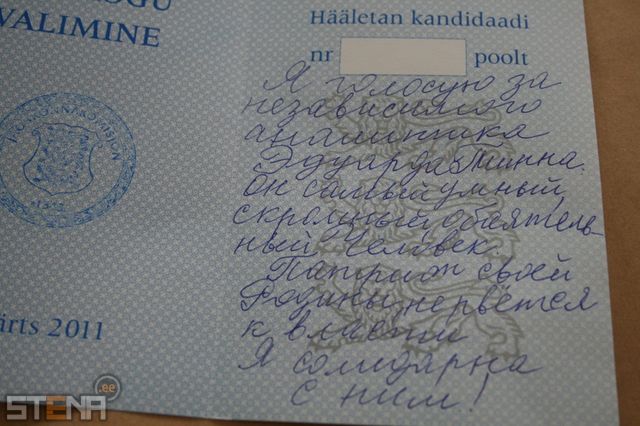 OGU
VALIMINE
Hääletan kandidaadi
nr poolt
Я голосую за
независимого
аналитика
Эдуарда Тинна.
Он самый умный,
скромный, обаятель-
ный человек.
Патриот своей
Родины, не рвётся
к власти
Я солидарна
с ним!
ärts 2011
STENA.ee